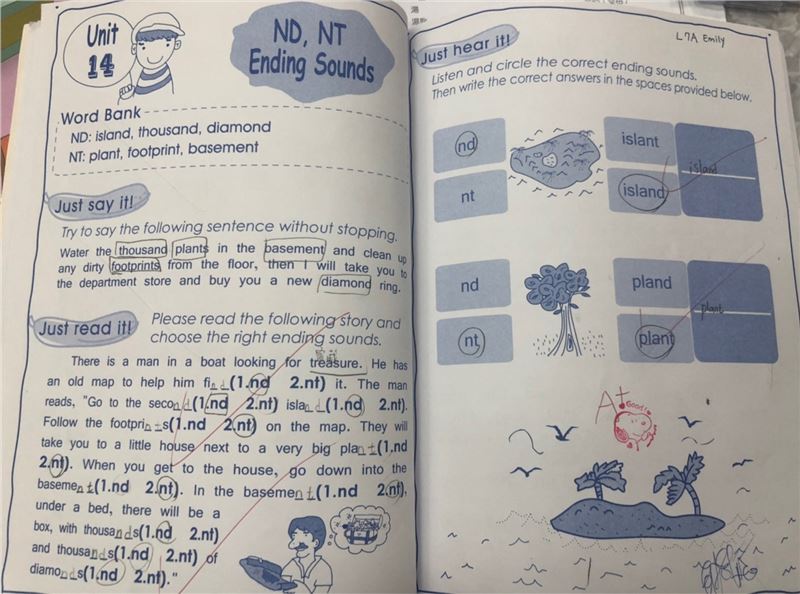 Unit
14
ND, NT
Ending Sounds
Word Bank
ND: island, thousand, diamond
NT: plant, footprint, basement
Just say it!
Try to say the following sentence without stopping.
Water the thousand plants in the basement and clean up
any dirty footprints from the floor, then I will take you to
the department store and buy you a new diamond ring.
Just read it!
Please read the following story and
choose the right ending sounds.
There is a man in a boat looking for treasure. He has
an old map to help him find(1.nd 2.nt) it. The man
reads, "Go to the second(1.nd 2.nt) island(1.nd 2.nt).
Follow the footprints(1.nd 2.nt) on the map. They will
take you to a little house next to a very big plant(1.nd
2.nt). When you get to the house, go down into the
basement(1.nd 2.nt). In the basement(1.nd 2.nt),
under a bed, there will be a
box, with thousands(1.nd 2.nt)
and thousands(1.nd 2.nt) of
diamonds(1.nd 2.nt)."
L7A Emily
Just hear it!
Listen and circle the correct ending sounds.
Then write the correct answers in the spaces provided below.
nd
nt
islant
island
island
nd
nt
pland
plant
plant
A+
Good!